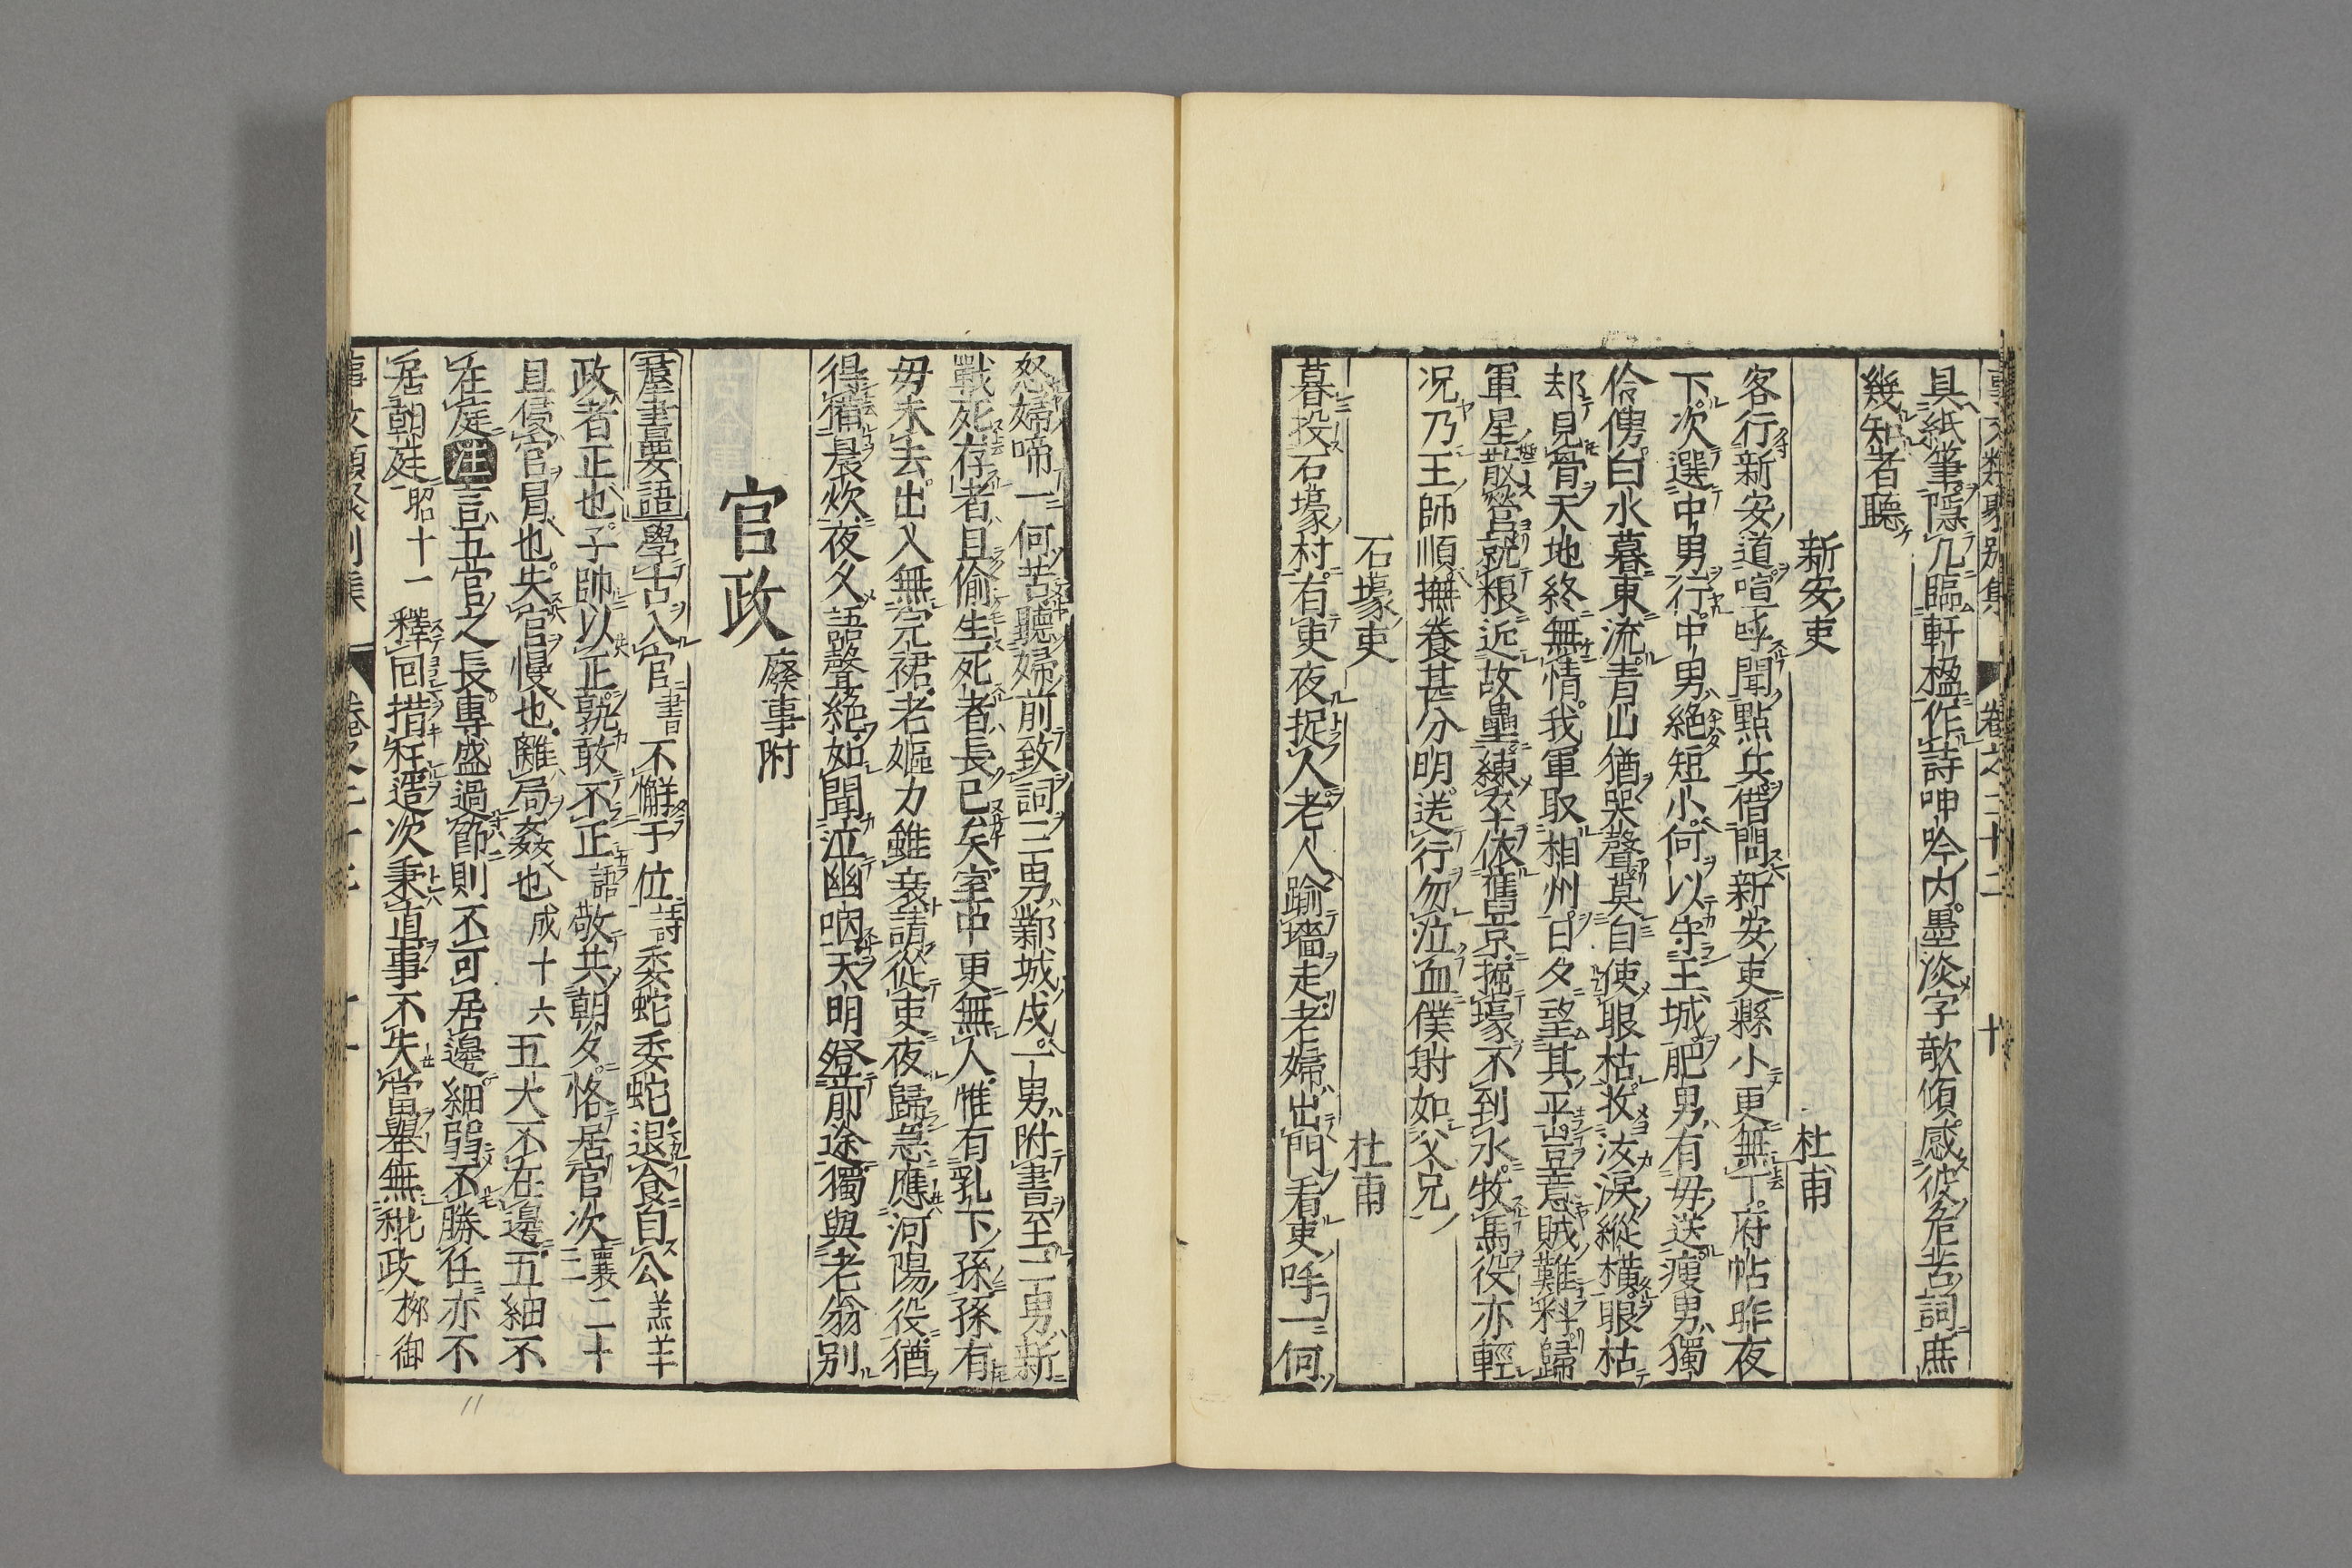 事文類聚別集 卷之二十二 十
具紙筆隱几臨軒楹作詩呻吟内墨淡字欹傾感彼危苦詞庶
幾知者聽
新安吏 杜甫
客行新安道喧呼聞點兵借問新安吏縣小更無丁府帖昨夜
下次選中男行中男絶短小何以守王城肥男有母送瘦男獨
伶俜白水暮東流青山猶哭聲莫自使眼枯收汝淚縱橫眼枯
却見骨天地終無情我軍取相州日夕望其平豈意賊難料歸
軍星散營就粮近故壘練卒依舊京掘壕不到水牧馬役亦輕
况乃王師順撫養甚分明送行勿泣血僕射如父兄
石壕吏 杜甫
暮投石壕村有吏夜捉人老人踰墻走老婦出門看吏呼一何
怒婦啼一何苦聽婦前致詞三男鄴城戍一男附書至二男新
戰死存者且偷生死者長已矣室中更無人惟有乳下孫孫有
母未去出入無完裙老嫗力雖衰請從吏夜歸急應河陽役猶
得備晨炊夜久語聲絶如聞泣幽咽天明登前途獨與老翁別
官政 廢事附
羣書要語 學古入官書不懈于位詩委蛇委蛇退食自公羔羊
政者正也子帥以正孰敢不正語敬共朝夕恪居官次襄二十三
且侵官冒也失官慢也離局姦也成十六五大不在邊五細不
在庭注言五官之長專盛過節則不可居邊細弱不勝任亦不
居朝庭昭十一釋回措枉造次秉直事不失當舉無秕政栁御